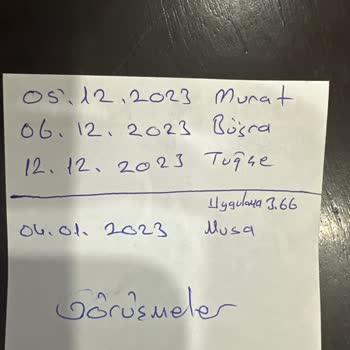 05.12.2023 Murat
06.12.2023 Büşra
12.12.2023 Tuğçe
Uygulama 3.66
04.01.2023 Musa
Görüşmeler